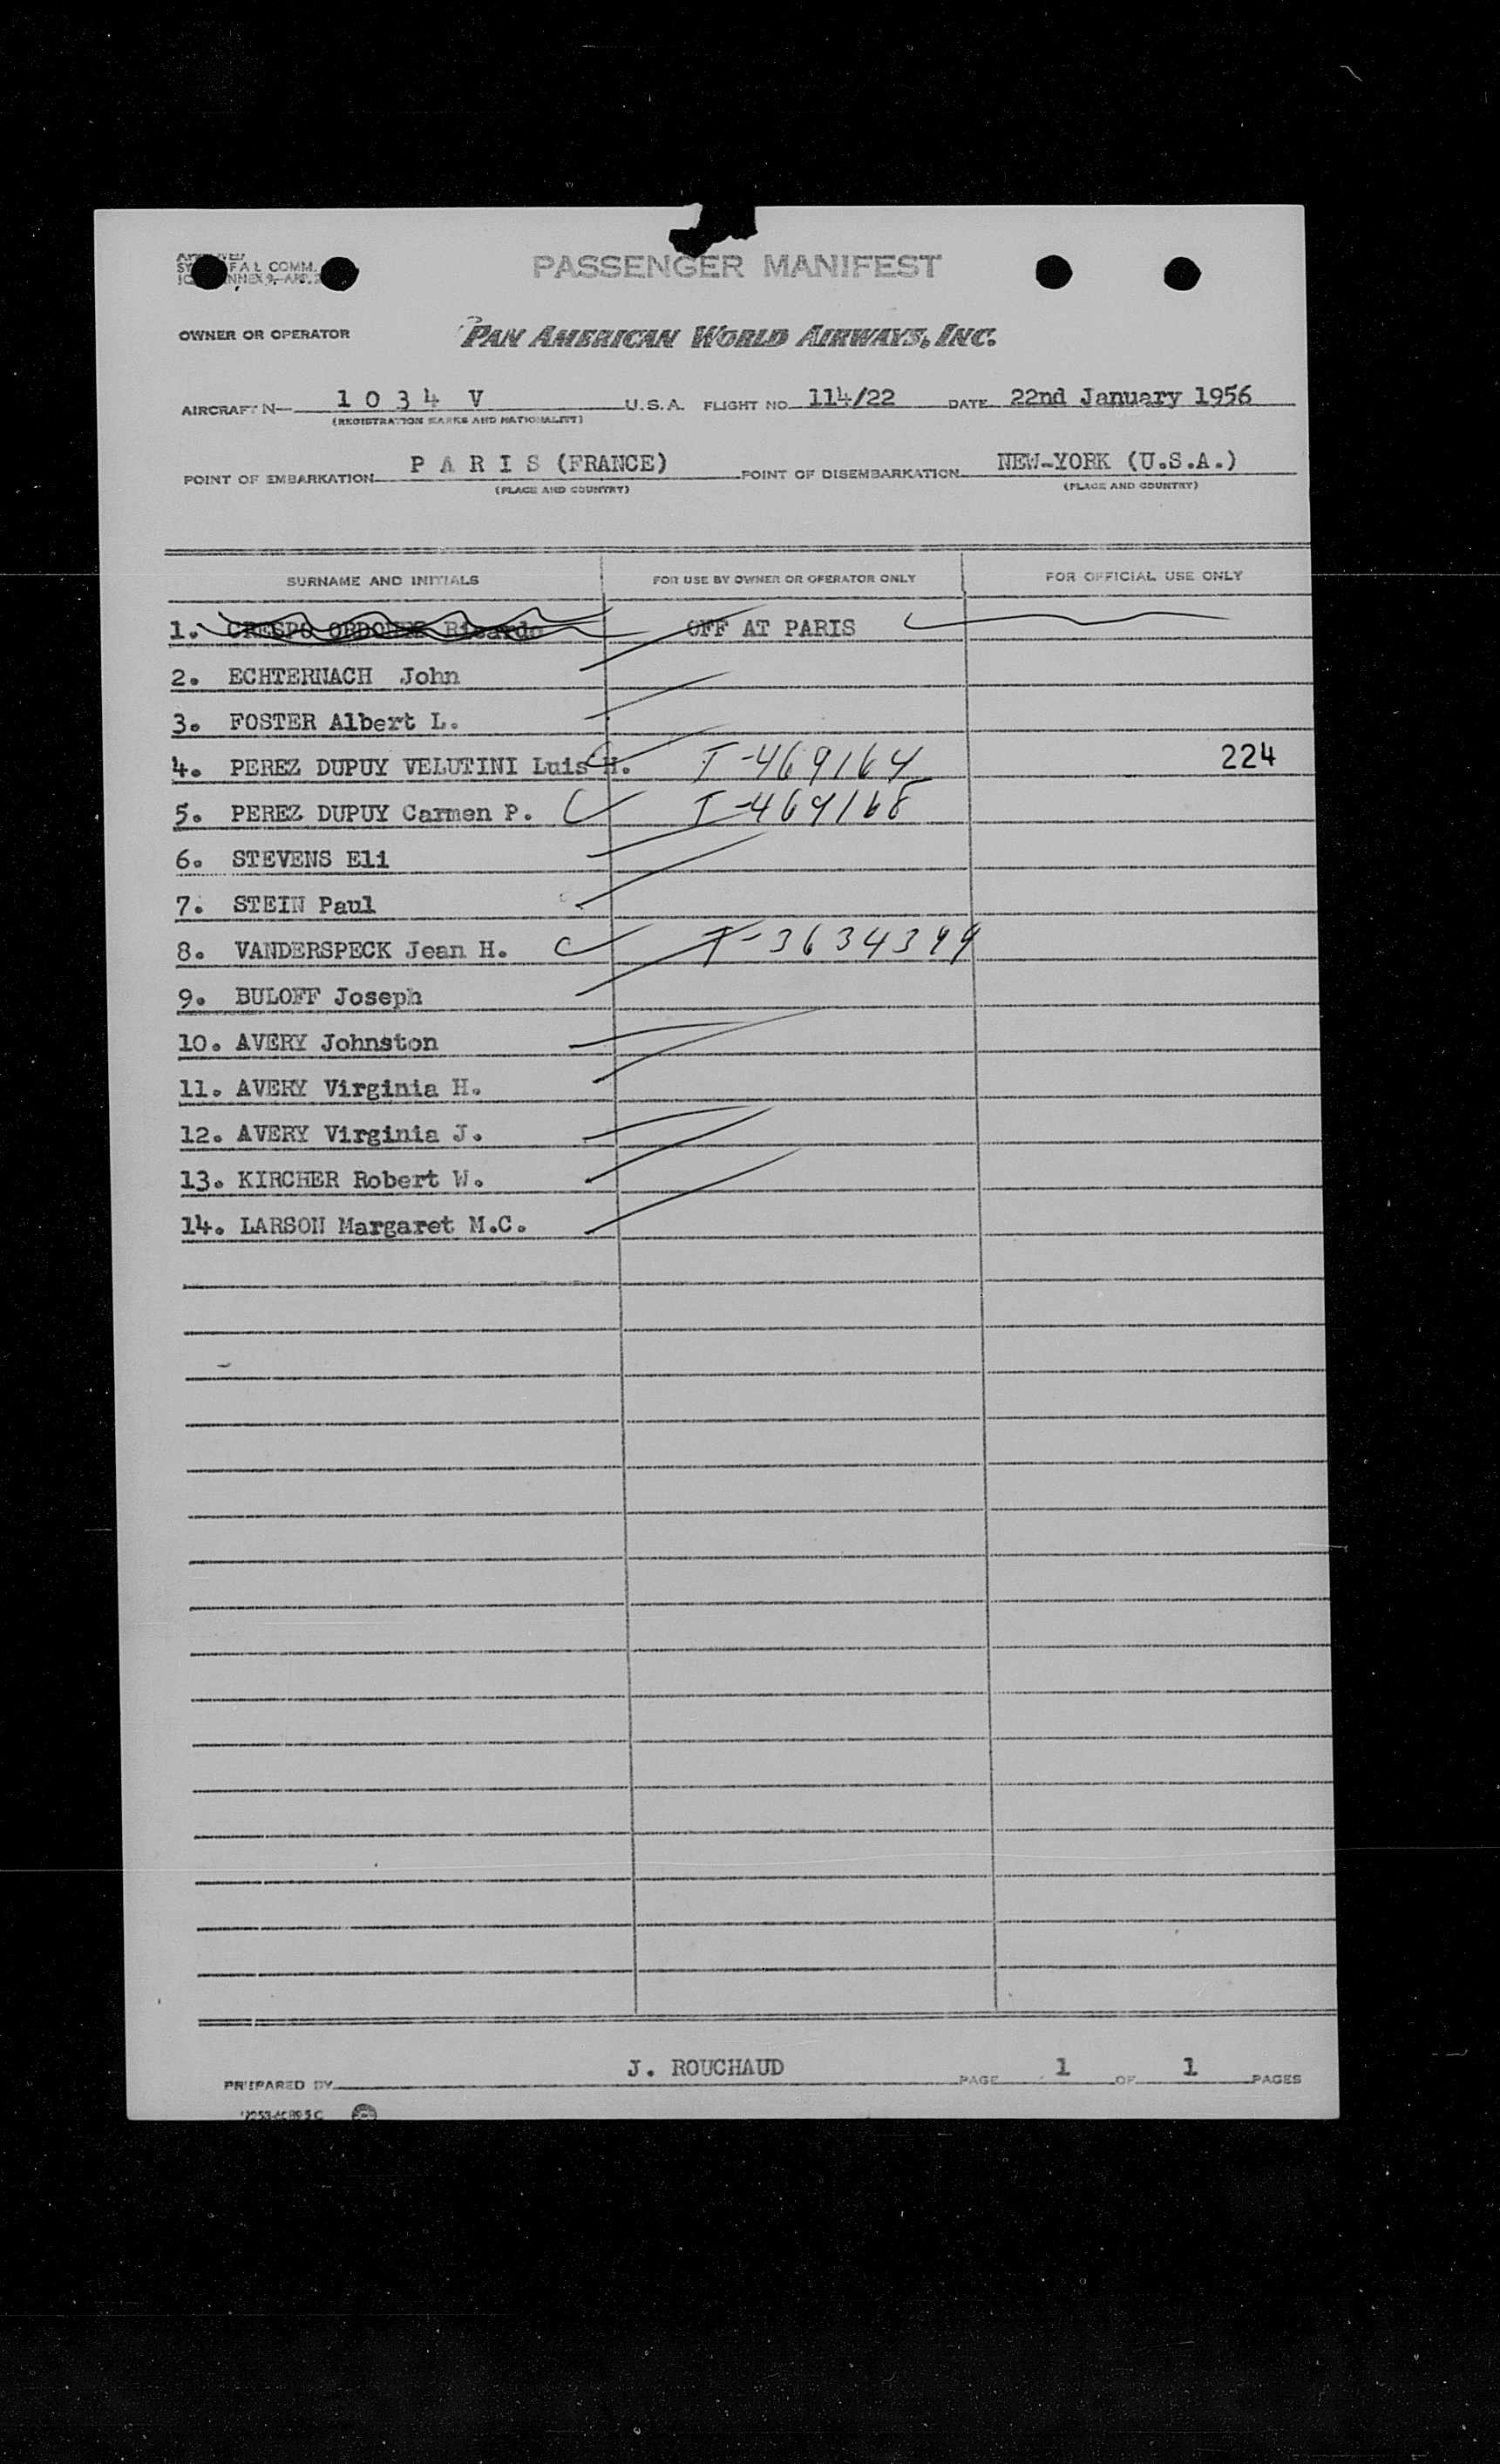 PASSENGER MANIFEST
OWNER OR OPERATOR PAN AMERICAN WORLD AIRWAYS, INC.
AIRCRAFT N 1034 V U.S.A. FLIGHT NO. 114/22 DATE 22nd January 1956
(REGISTRATION MARKS AND NATIONALITY)
POINT OF EMBARKATION P A R I S (FRANCE) POINT OF DISEMBARKATION NEW-YORK (U.S.A.)
(PLACE AND COUNTRY) (PLACE AND COUNTRY)
SURNAME AND INITIALS FOR USE BY OWNER OR OPERATOR ONLY FOR OFFICIAL USE ONLY
1. CRESPO ORDONEZ Ricardo OFF AT PARIS
2. ECHTERNACH John
3. FOSTER Albert L.
4. PEREZ DUPUY VELUTINI Luis H. T-469164 224
5. PEREZ DUPUY Carmen P. T-469168
6. STEVENS Eli
7. STEIN Paul
8. VANDERSPECK Jean H. T-3634399
9. BULOFF Joseph
10. AVERY Johnston
11. AVERY Virginia H.
12. AVERY Virginia J.
13. KIRCHER Robert W.
14. LARSON Margaret M.C.
PREPARED BY J. ROUCHAUD PAGE 1 OF 1 PAGES